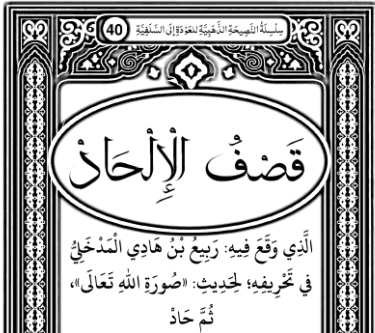 سِلْسِلَةُ النَّصِيحَةِ الذَّهَبِيَّةِ لِلعَوْدَةِ إِلَى السَّلَفِيَّةِ 40
قَصْفُ الْإِلْحَادْ
الَّذِي وَقَعَ فِيهِ: رَبِيعُ بْنُ هَادِي الْمَدْخَلِيُّ
فِي تَحْرِيفِهِ؛ لِحَدِيثِ: «صُورَةِ اللهِ تَعَالَى»،
ثُمَّ حَادْ